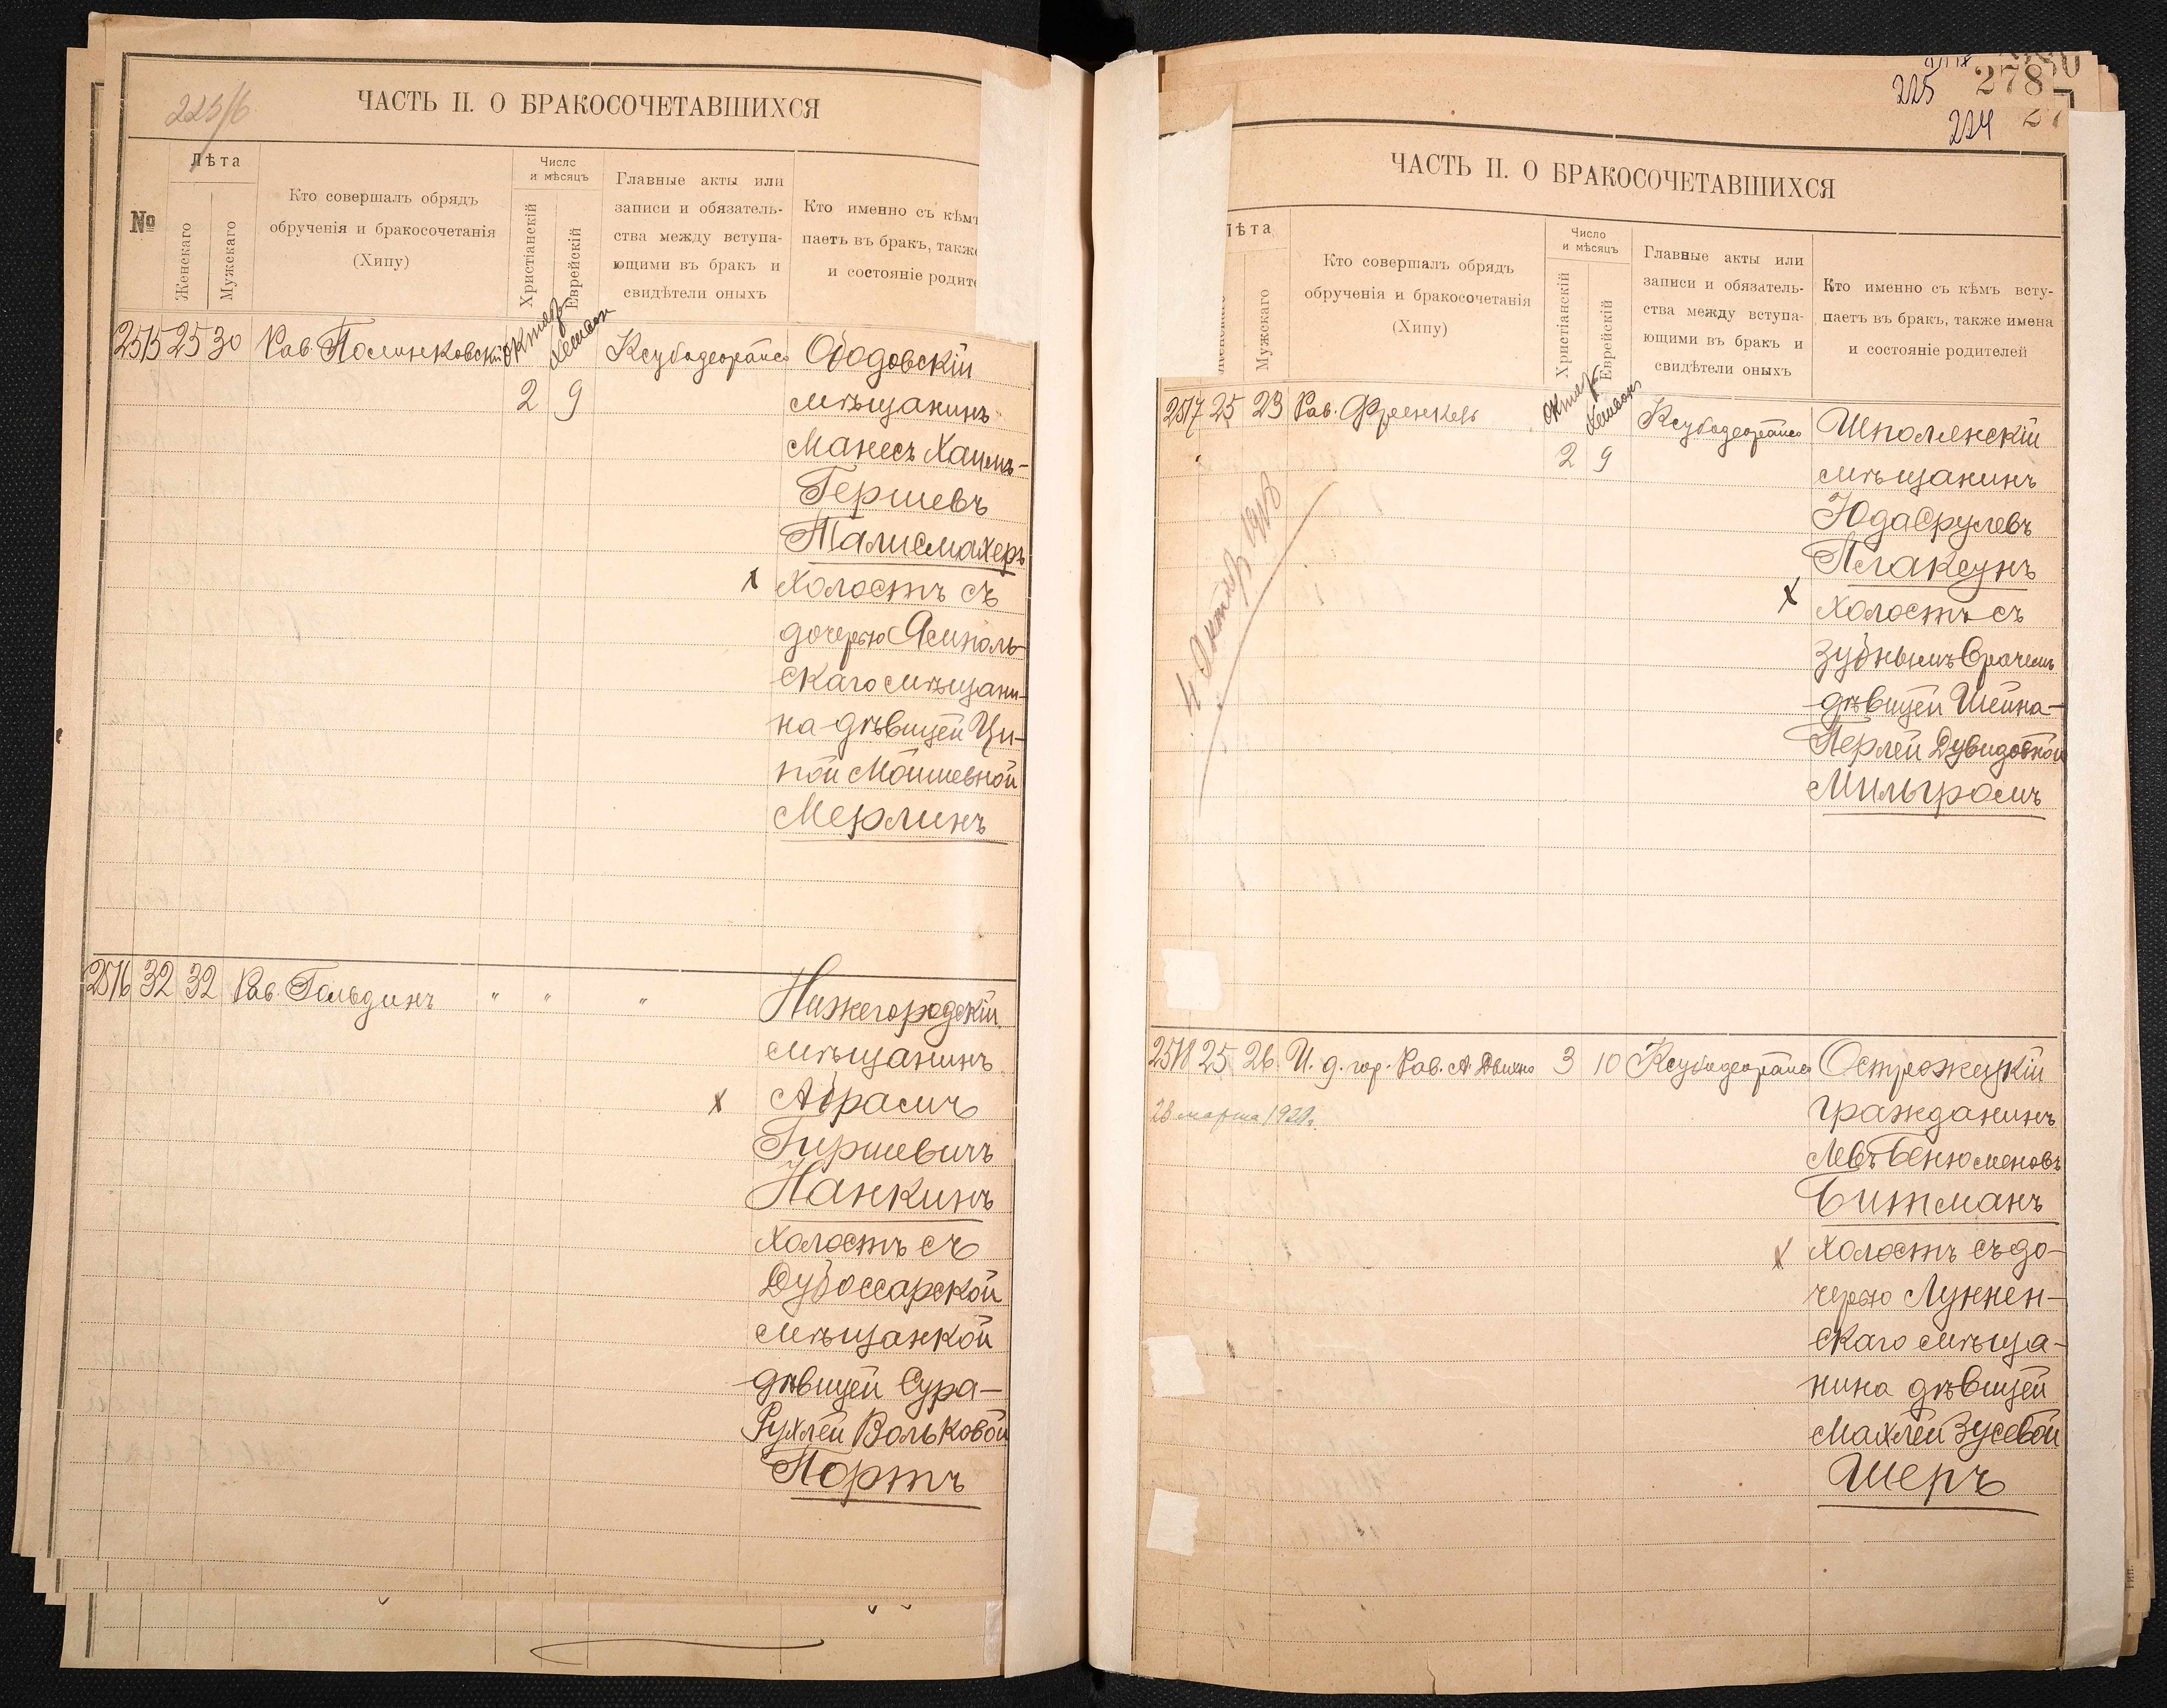 ЧАСТЬ II. О БРАКОСОЧЕТАВШИХСЯ
№
Лѣта
Женскаго
Мужскаго
Кто совершалъ обрядъ
обрученія и бракосочетанія
(Хипу)
Число
и мѣсяцъ
Христіанскій
Еврейскій
Главные акты или
записи и обязатель-
ства между вступа-
ющими въ бракъ и
свидѣтели оныхъ
Кто именно съ кѣмъ
паетъ въ бракъ, также
и состояніе родите
2515 25 30 Рав. Полинковскій
Октяб. Хешван
2 9
Ободовскій
мѣщанинъ
Манесъ Хаимъ-
Гершевъ
Талисмахеръ
х холостъ съ
дочерью Ямполь-
скаго мѣщани-
на дѣвицей Ци-
пой Мошшевной
Мерлинъ
2516 32 32 Рав. Гольдинъ " " "
Нижегородскій
мѣщанинъ
х Абрамъ
Гиршевичъ
Нанкинъ
холостъ съ
Дубоссарской
мѣщанкой
дѣвицей Сура-
Рухлей Вольковой
Портъ
225 278
224
ЧАСТЬ II. О БРАКОСОЧЕТАВШИХСЯ
ѣта
Мужскаго
Кто совершалъ обрядъ
обрученія и бракосочетанія
(Хипу)
Число
и мѣсяцъ
Христіанскій
Еврейскій
Главные акты или
записи и обязатель-
ства между вступа-
ющими въ бракъ и
свидѣтели оныхъ
Кто именно съ кѣмъ всту-
паетъ въ бракъ, также имена
и состояніе родителей
2517 25 29 Рав. Френкель
Октяб. Хешван
2 9
4 Октябр 1918
Шполянскій
мѣщанинъ
Юда Срулевъ
Плаксунъ
х холостъ съ
зубнымъ врачемъ
дѣвицей Шейна-
Перлей Дувидовной
Мильгромъ
2518 25 26 И. д. гор. Рав. А. 3 10
28 марта 1920г.
Острожецкій
гражданинъ
Левъ Бенюменовъ
Битманъ
х холостъ съ до-
черью Лункен-
скаго мѣща-
нина дѣвицей
Махлей Зусевой
Шеръ